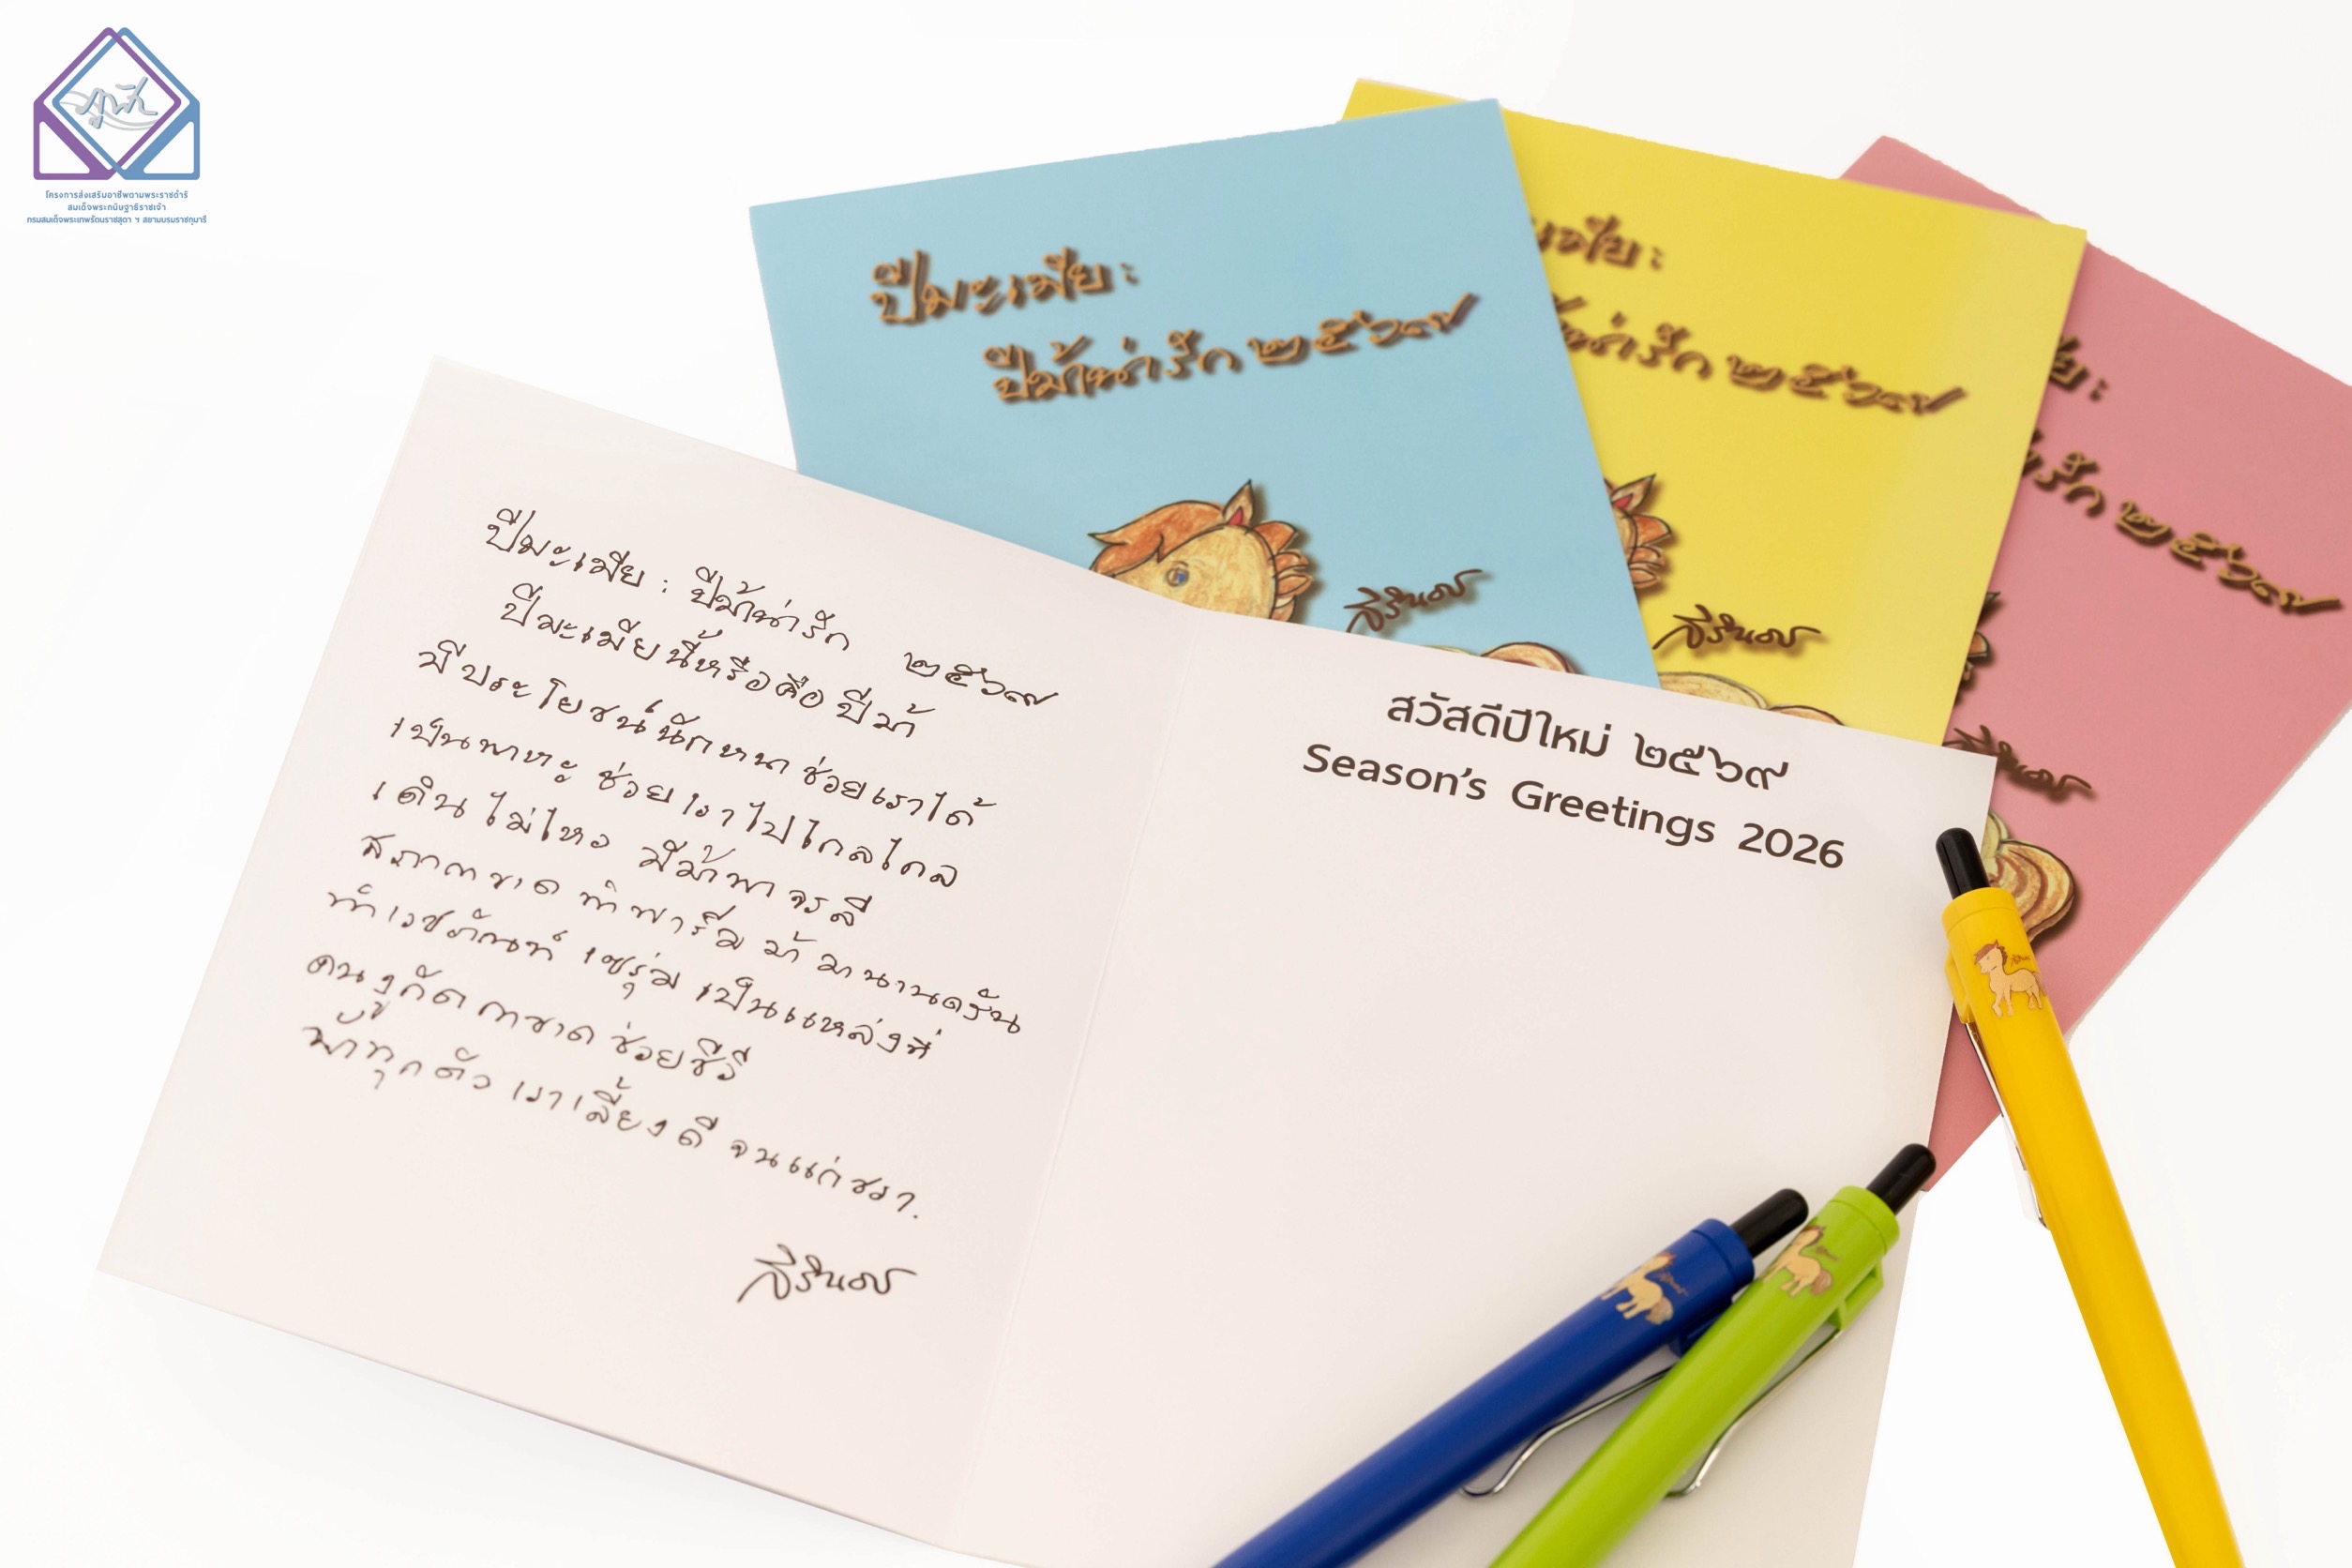 ภูฟ้า
โครงการส่งเสริมอาชีพตามพระราชดำริ
สมเด็จพระกนิษฐาธิราชเจ้า
กรมสมเด็จพระเทพรัตนราชสุดา ฯ สยามบรมราชกุมารี
ปีมะเมีย :
ปีม้าน่ารัก ๒๕๖๙
สิรินธร
เมีย :
น่ารัก ๒๕๖๙
สิรินธร
ย :
รัก ๒๕๖๙
สิรินธร
ปีมะเมีย : ปีม้าน่ารัก ๒๕๖๙
ปีมะเมียนี้หรือคือปีม้า
มีประโยชน์นักหนาช่วยเราได้
เป็นพาหะ ช่วยเราไปไกลไกล
เดินไม่ไหว มีม้าพาจรลี
สภากาชาด ทำฟาร์มม้ามานานครัน
ทำเวชภัณฑ์ เซรุ่ม เป็นแหล่งที่
คนงูกัด กาชาด ช่วยชีวี
ม้าทุกตัว เราเลี้ยงดี จนแก่ชรา.
สิรินธร
สวัสดีปีใหม่ ๒๕๖๙
Season's Greetings 2026